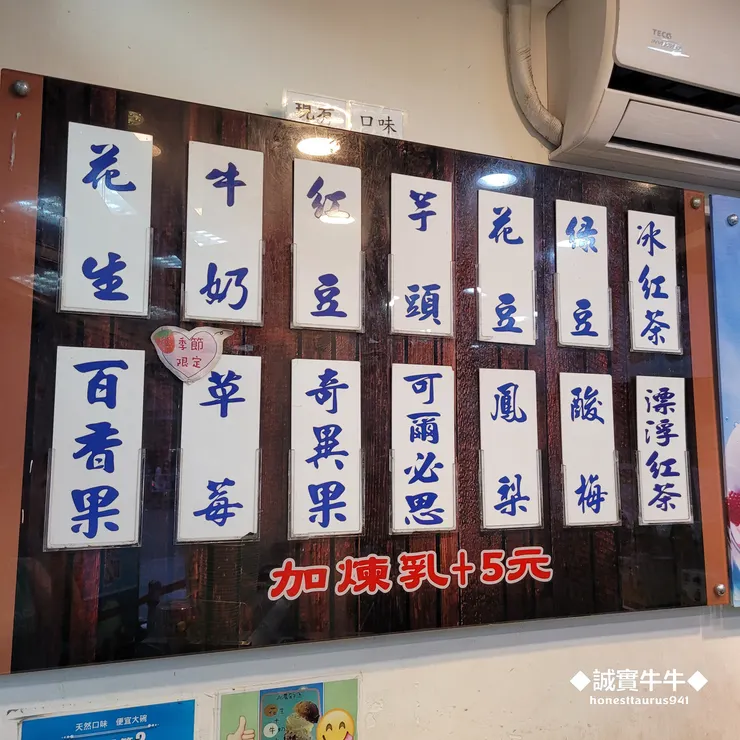 TECO
現有 口味
花生
牛奶
紅豆
芋頭
花豆
綠豆
冰紅茶
季節
限定
百香果
草莓
奇異果
可爾必思
鳳梨
酸梅
漂浮紅茶
加煉乳+5元
天然口味 便宜大碗
◆誠實牛牛◆
honesttaurus941